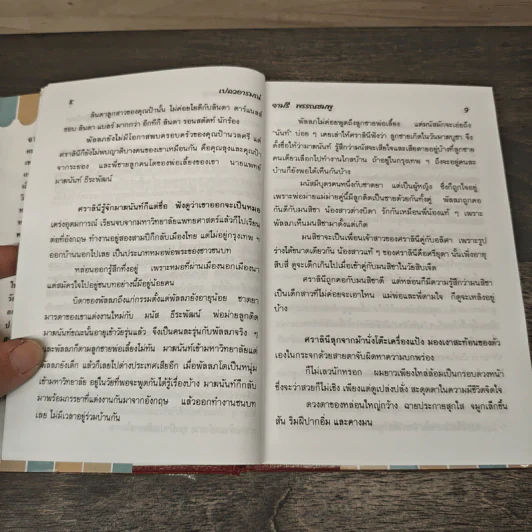 ๘
เปลวอารมณ์
ลันดาลูกสาวของคุณป้านั้น ไม่ค่อยไยดีกับลินดา ดาร์แนลล์
ชอบ ลินดา แบลร์ มากกว่า อีกทีก็ ลินดา รอนสตัดท์ นักร้อง
พัลลภยังไม่มีโอกาสพบครอบครัวของคุณป้านวลศรี แต่
ศราลินีก็ยังไม่พบญาติบางคนของเขาเหมือนกัน คือคุณลุงและคุณป้า
จากระยอง และพี่ชายลูกคนโตของพ่อเลี้ยงของเขา นายแพทย์
มาฆนันท์ ธีระพัฒน์
ศราลินีรู้จักมาฆนันท์ก็แต่ชื่อ ฟังดูว่าเขาออกจะเป็นหมอ
เคร่งอุดมการณ์ เรียนจบจากมหาวิทยาลัยแพทยศาสตร์แล้วก็ไปเรียน
ต่อที่อังกฤษ ทำงานอยู่สองสามปีก็กลับเมืองไทย แต่ไม่อยู่กรุงเทพ ฯ
ออกบ้านนอกไปเลย เป็นประเภทหมอพ่อพระของชาวชนบท
หล่อนออกรู้สึกทึ่งอยู่ เพราะหมอที่ผ่านเมืองนอกเมืองนา
แต่สมัครใจไปอยู่ชนบทอย่างนี้มีอยู่น้อยคน
บิดาของพัลลภถึงแก่กรรมตั้งแต่พัลลภยังอายุน้อย ชาตยา
มารดาของเขาแต่งงานใหม่กับ มนัส ธีระพัฒน์ พ่อม่ายลูกติด
มาฆนันท์ขณะนั้นอายุเข้าวัยรุ่นแล้ว จึงเป็นคนละรุ่นกับพัลลภจริง ๆ
และพัลลภก็ตามลูกชายพ่อเลี้ยงไม่ทัน มาฆนันท์เข้ามหาวิทยาลัยแต่
พัลลภยังเด็ก แล้วก็เลยไปต่างประเทศเสียอีก เมื่อพัลลภโตเป็นหนุ่ม
เข้ามหาวิทยาลัย อยู่ในวัยที่พอจะพูดกันได้รู้เรื่องบ้าง มาฆนันท์ก็กลับ
มาพร้อมภรรยาที่แต่งงานกันมาจากอังกฤษ แล้วออกทำงานชนบท
เลย ไม่มีเวลาอยู่ร่วมบ้านกัน
จามรี พรรณชมพู
๙
พัลลภไม่ค่อยพูดถึงลูกชายพ่อเลี้ยง แต่มนัสมักจะเอ่ยถึง
"นันท์" บ่อย ๆ เคยเล่าให้ศราลินีฟังว่า ลูกชายเกิดในวันมาฆบูชา จึง
ตั้งชื่อให้ว่ามาฆนันท์ รู้สึกว่ามนัสจะเสียใจและเสียดายอยู่บ้างที่ลูกชาย
คนเดียวเลือกไปทำงานไกลบ้าน ถ้าอยู่ในกรุงเทพ ฯ ถึงจะอยู่คนละ
บ้านก็ยังพอได้เห็นกันบ้าง
มนัสมีบุตรคนหนึ่งกับชาตยา แต่เป็นผู้หญิง ซึ่งก็ถูกใจอยู่
เพราะพ่อม่ายแม่ม่ายคู่นี้มีลูกติดเป็นชายด้วยกันทั้งคู่ พัลลภถูกคอ
กันดีกับมนสิชา น้องสาวต่างบิดา รักกันเหมือนพี่น้องแท้ ๆ เพราะ
พัลลภเห็นมนสิชามาตั้งแต่เกิด
มนสิชาจะเป็นเพื่อนเจ้าสาวของศราลินีคู่กับอลิศา เพราะรูป
ร่างได้ขนาดเดียวกัน น้องสาวแท้ ๆ ของศราลินีคือศรียุดา นั้นเพิ่งอายุ
สิบสี่ ดูจะเด็กเกินไปเมื่อเข้าคู่กับมนสิชาในวัยสิบเจ็ด
ศราลินีถูกคอกับมนสิชาดี แต่หล่อนก็มีความรู้สึกว่ามนสิชา
เป็นเด็กสาวที่ไม่ค่อยจะเอาไหน แม่พ่อและพี่ตามใจ ก็ดูจะเหลิงอยู่
บ้าง
ศราลินีลุกจากม้านั่งโต๊ะเครื่องแป้ง มองเงาสะท้อนของตัว
เองในกระจกด้วยสายตาจับผิดหาความบกพร่อง
ก็ไม่เลวนักหรอก ผมยาวเพียงไหล่ล้อมเป็นกรอบดวงหน้า
ซึ่งจะว่าสวยก็ไม่เชิง เพียงแต่ดูเปล่งปลั่ง สะดุดตาในความมีชีวิตจิตใจ
ดวงตาของหล่อนใหญ่กว้าง ฉายประกายสุกใส จมูกเล็กขึ้น
สัน ริมฝีปากอิ่ม และคางมน